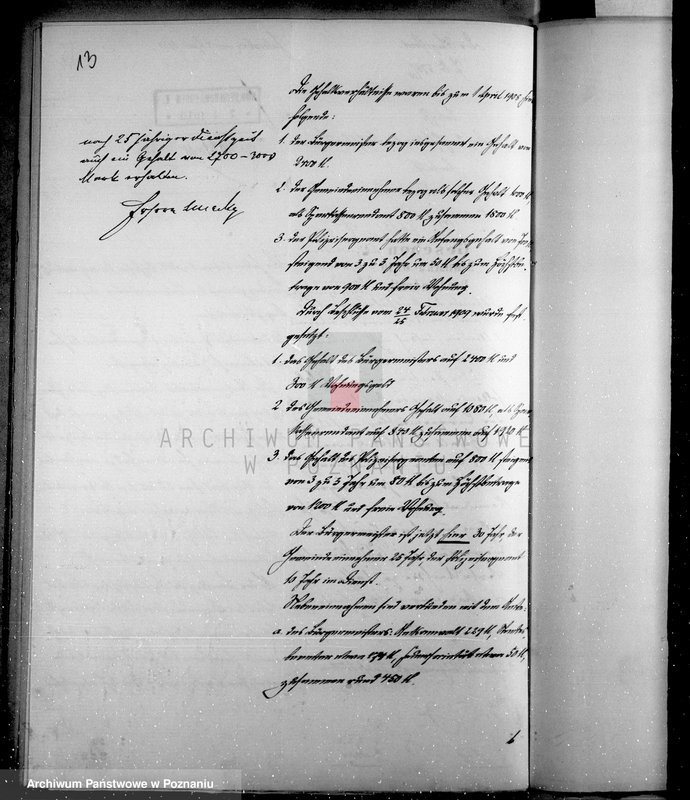 13
nach 25 jähriger Dienstzeit
auch ein Gehalt von 2700-3000
Mark erhalten.
Die Gehaltsverhältnisse waren bis zum 1 April 1908
folgende:
1. der Bürgermeister bezog insgesammt ein Gehalt von
2. der Gemeindeeinnehmer bezog als solcher Gehalt 1000 M,
als Sparkassenrendant 800 M, zusammen 1800 M
3. der Polizeisergeant hatte ein Anfangsgehalt von
steigend von 3 zu 3 Jahr um 50 M bis zum Höchstbe-
trage von 900 M und freie Wohnung.
Durch Beschlüsse vom 24/25 Februar 1909 wurde fest
gesetzt:
1. das Gehalt des Bürgermeisters auf 2400 M und
300 M Wohnungsgeld
2 des Gemeindeeinnehmers Gehalt auf 1080 M, als Spar
kassenrendant auf 840 M, zusammen auf 1920 M
3. das Gehalt des Polizeisergeanten auf 800 M steigend
von 3 zu 3 Jahr um 80 M bis zum Höchstbetrage
von 1200 M und freie Wohnung.
Der Bürgermeister ist jetzt hier 30 Jahr der
Gemeindeeinnehmer 25 Jahr der Polizeisergeant
10 Jahr im Dienst.
Nebeneinnahmen sind verbunden mit dem Amte:
a. des Bürgermeisters: 229 M, Standes-
beamten etwa 174 M, etwa 50 M,
zusammen rund 450 M.
ARCHIWUM PAŃSTWOWE
W POZNANIU
Archiwum Państwowe w Poznaniu